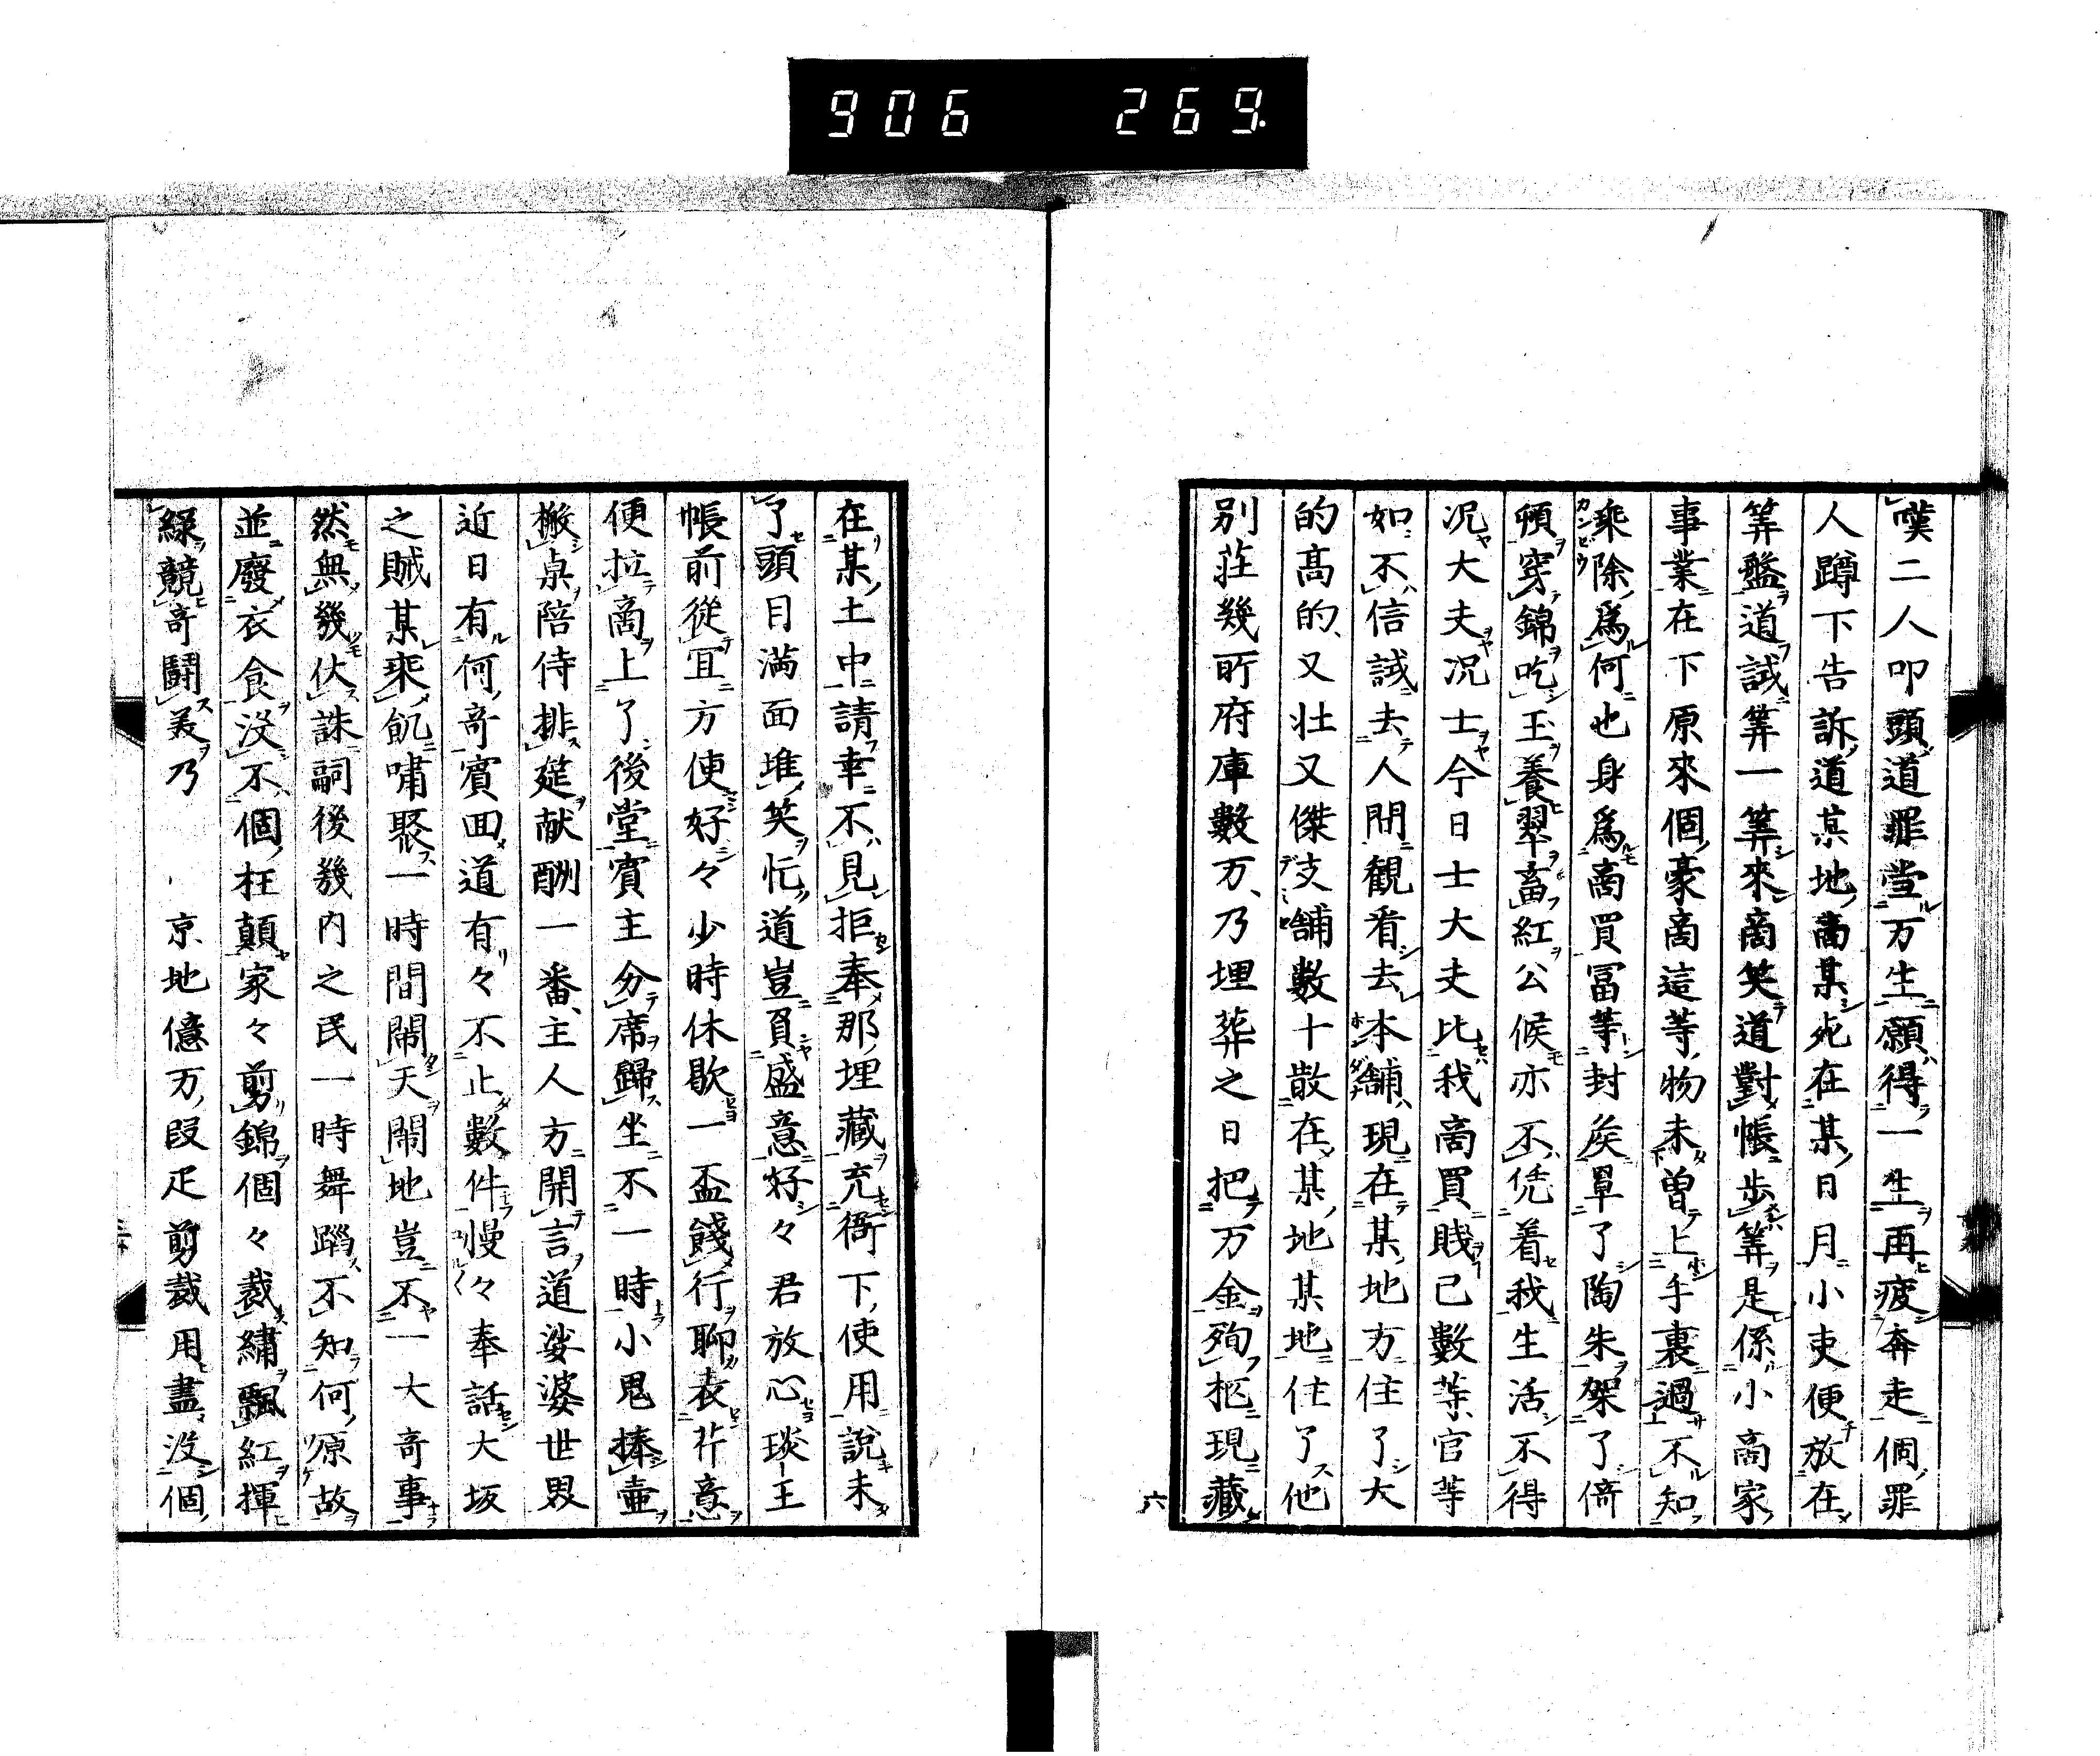 906 269
嘆二人叩頭道罪当万生願得一生再疲奔走個罪
人蹲下告訴道某地商某死在某日月小吏便放在
筭盤道誠筭一筭來商笑道對帳歩筭是係小商家
事業在下原來個豪商這等物未曽上手裏過不知
乘除爲何也身爲商買冨等封矦單了陶朱架了倚
頓穿錦吃玉養翠畜紅公候亦不凭着我生活不得
况大夫况士今日士大夫比我商買賎已數等官等
如不信誠去人間觀看去本舖現在某地方住了大
的髙的又壮又傑支舖數十散在某地某地住了他
別荘幾所府庫數万乃埋葬之日把万金殉柩現藏
六
在某土中請幸不見拒奉那埋藏充衙下使用說未
了頭目満面堆笑忙道豈負盛意好々君放心琰王
帳前從冝方使好々少時休歇一盃餞行聊表芹意
便拉商上了後堂賓主分席歸坐不一時小鬼捧壷
搬桌陪侍排筵献酬一番主人方開言道娑婆世界
近日有何奇賓囬道有々不止數件慢々奉話大坂
之賊某乘飢嘯聚一時間閙天閙地豈不一大奇事
然無幾伏誅嗣後幾内之民一時舞蹈不知何原故
並廢衣食没不個狂顛家々剪錦個々裁繡飄紅揮
緑競奇鬪美乃 京地億万段疋剪裁用盡没個